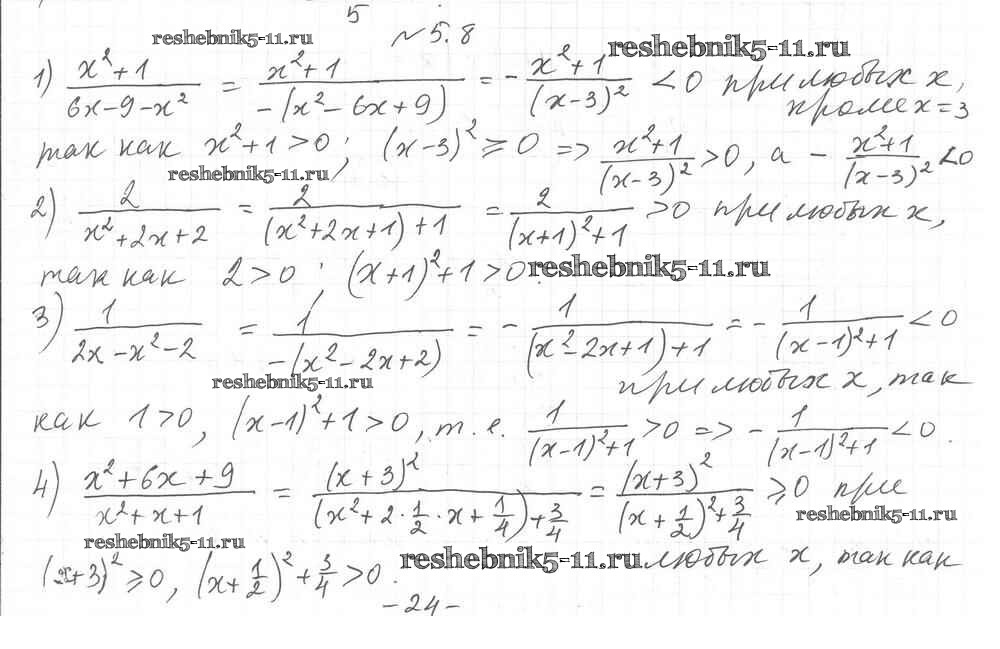 5
№5.8
reshebnik5-11.ru
reshebnik5-11.ru
1) (x²+1)/(6x-9-x²) = (x²+1)/(-(x²-6x+9)) = -(x²+1)/((x-3)²) <0 при любых x,
кроме x=3
так как x²+1>0; (x-3)²⩾0 => (x²+1)/((x-3)²) >0, а -(x²+1)/((x-3)²) <0
reshebnik5-11.ru
2) 2/(x²+2x+2) = 2/((x²+2x+1)+1) = 2/((x+1)²+1) >0 при любых x,
так как 2>0; (x+1)²+1>0.
reshebnik5-11.ru
3) 1/(2x-x²-2) = 1/(-(x²-2x+2)) = -1/((x²-2x+1)+1) = -1/((x-1)²+1) <0
reshebnik5-11.ru
при любых x, так
как 1>0, (x-1)²+1>0, т.е. 1/((x-1)²+1) >0 => -1/((x-1)²+1) <0.
4) (x²+6x+9)/(x²+x+1) = (x+3)²/((x²+2·1/2·x+1/4)+3/4) = (x+3)²/((x+1/2)²+3/4) ⩾0 при
reshebnik5-11.ru
reshebnik5-11.ru
reshebnik5-11.ru
любых x, так как
(x+3)²⩾0, (x+1/2)²+3/4>0.
-24-